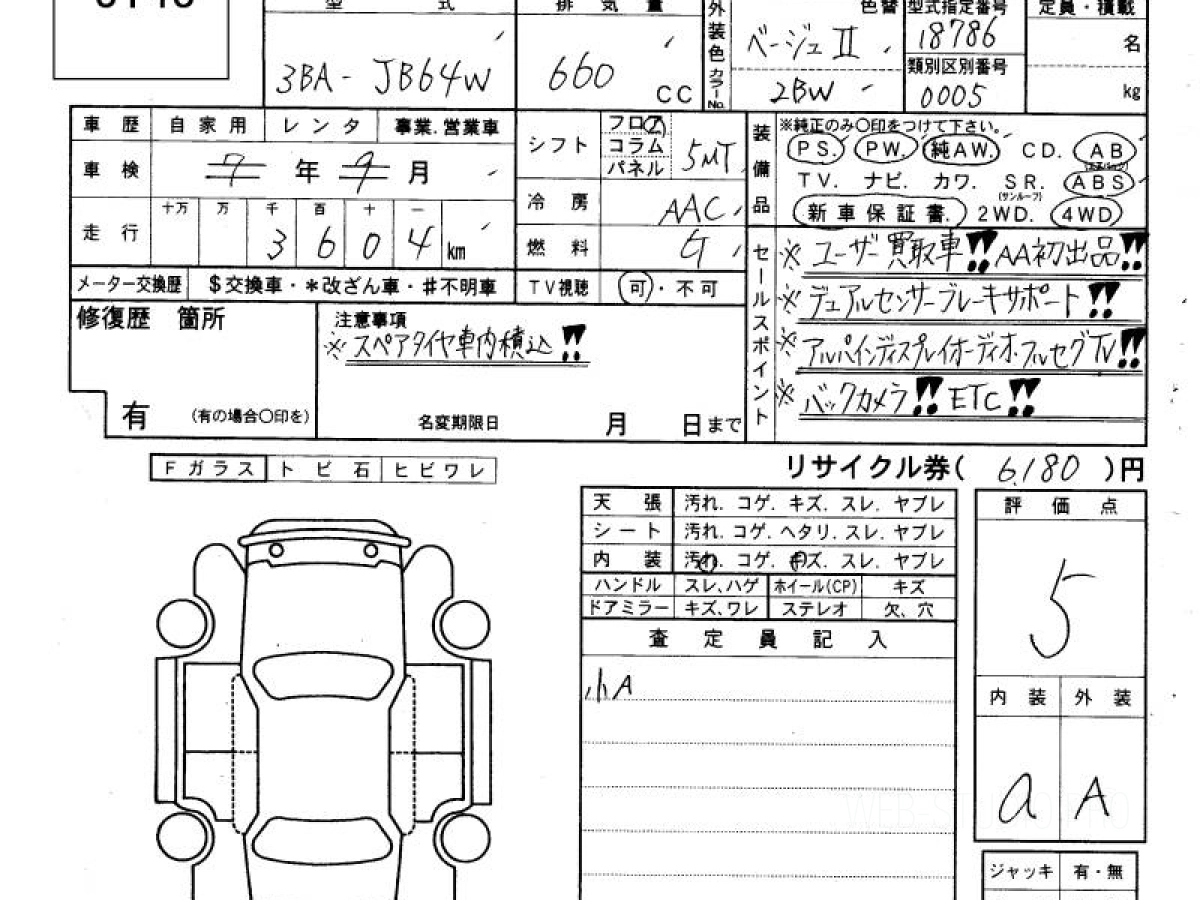 型 式
排 気 量
外装色
色替
型式指定番号
定員・積載
3BA-JB64W
660 CC
ベージュⅡ
カラーNo. 2BW
18786
類別区別番号
0005
名
kg
車 歴 自 家 用 レ ン タ 事業.営業車
車 検 7 年 9 月
走 行 十万 万 千 百 十 一
3 6 0 4 km
メーター交換歴 $交換車・*改ざん車・#不明車
シフト フロア コラム パネル 5MT
冷 房 AAC
燃 料 G
TV視聴 可・不可
装備品
※純正のみ○印をつけて下さい。
PS. PW. 純AW. CD. AB
(エアバック)
TV. ナビ. カワ. SR. ABS
(サンルーフ)
新車保証書. 2WD. 4WD
セールスポイント
※ユーザー買取車!! AA初出品!!
※デュアルセンサーブレーキサポート!!
※アルパインディスプレイオーディオ・フルセグTV!!
※バックカメラ!! ETC!!
修復歴 箇所
有 (有の場合○印を)
注意事項
※スペアタイヤ車内積込!!
名変期限日 月 日まで
Fガラス トビ石 ヒビワレ
リサイクル券( 6,180 )円
天 張 汚れ. コゲ. キズ. スレ. ヤブレ
シート 汚れ. コゲ. ヘタリ. スレ. ヤブレ
内 装 汚れ. コゲ. キズ. スレ. ヤブレ
ハンドル スレ、ハゲ ホイール(CP) キズ
ドアミラー キズ、ワレ ステレオ 欠、穴
査 定 員 記 入
小A
評 価 点
5
内 装 外 装
a A
ジャッキ 有・無